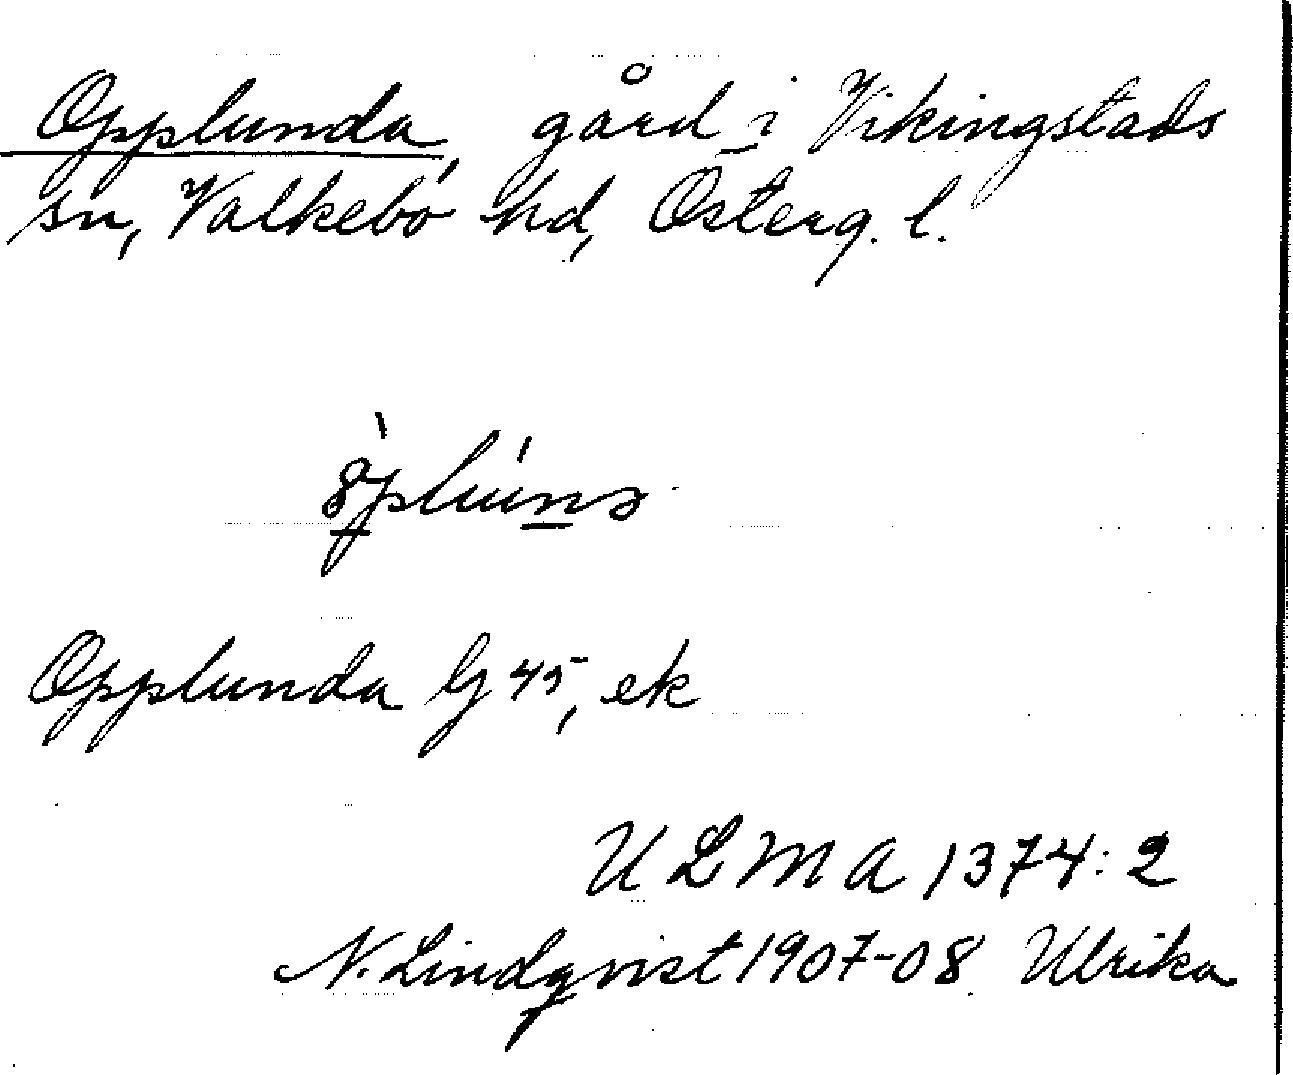 Opplunda, gård i Vikingstads
sn, Valkebo hd, Österg. l.
Opplunda G 45, ek
ULMA 1374:2
N. Lindqvist 1907-08 Ulrika